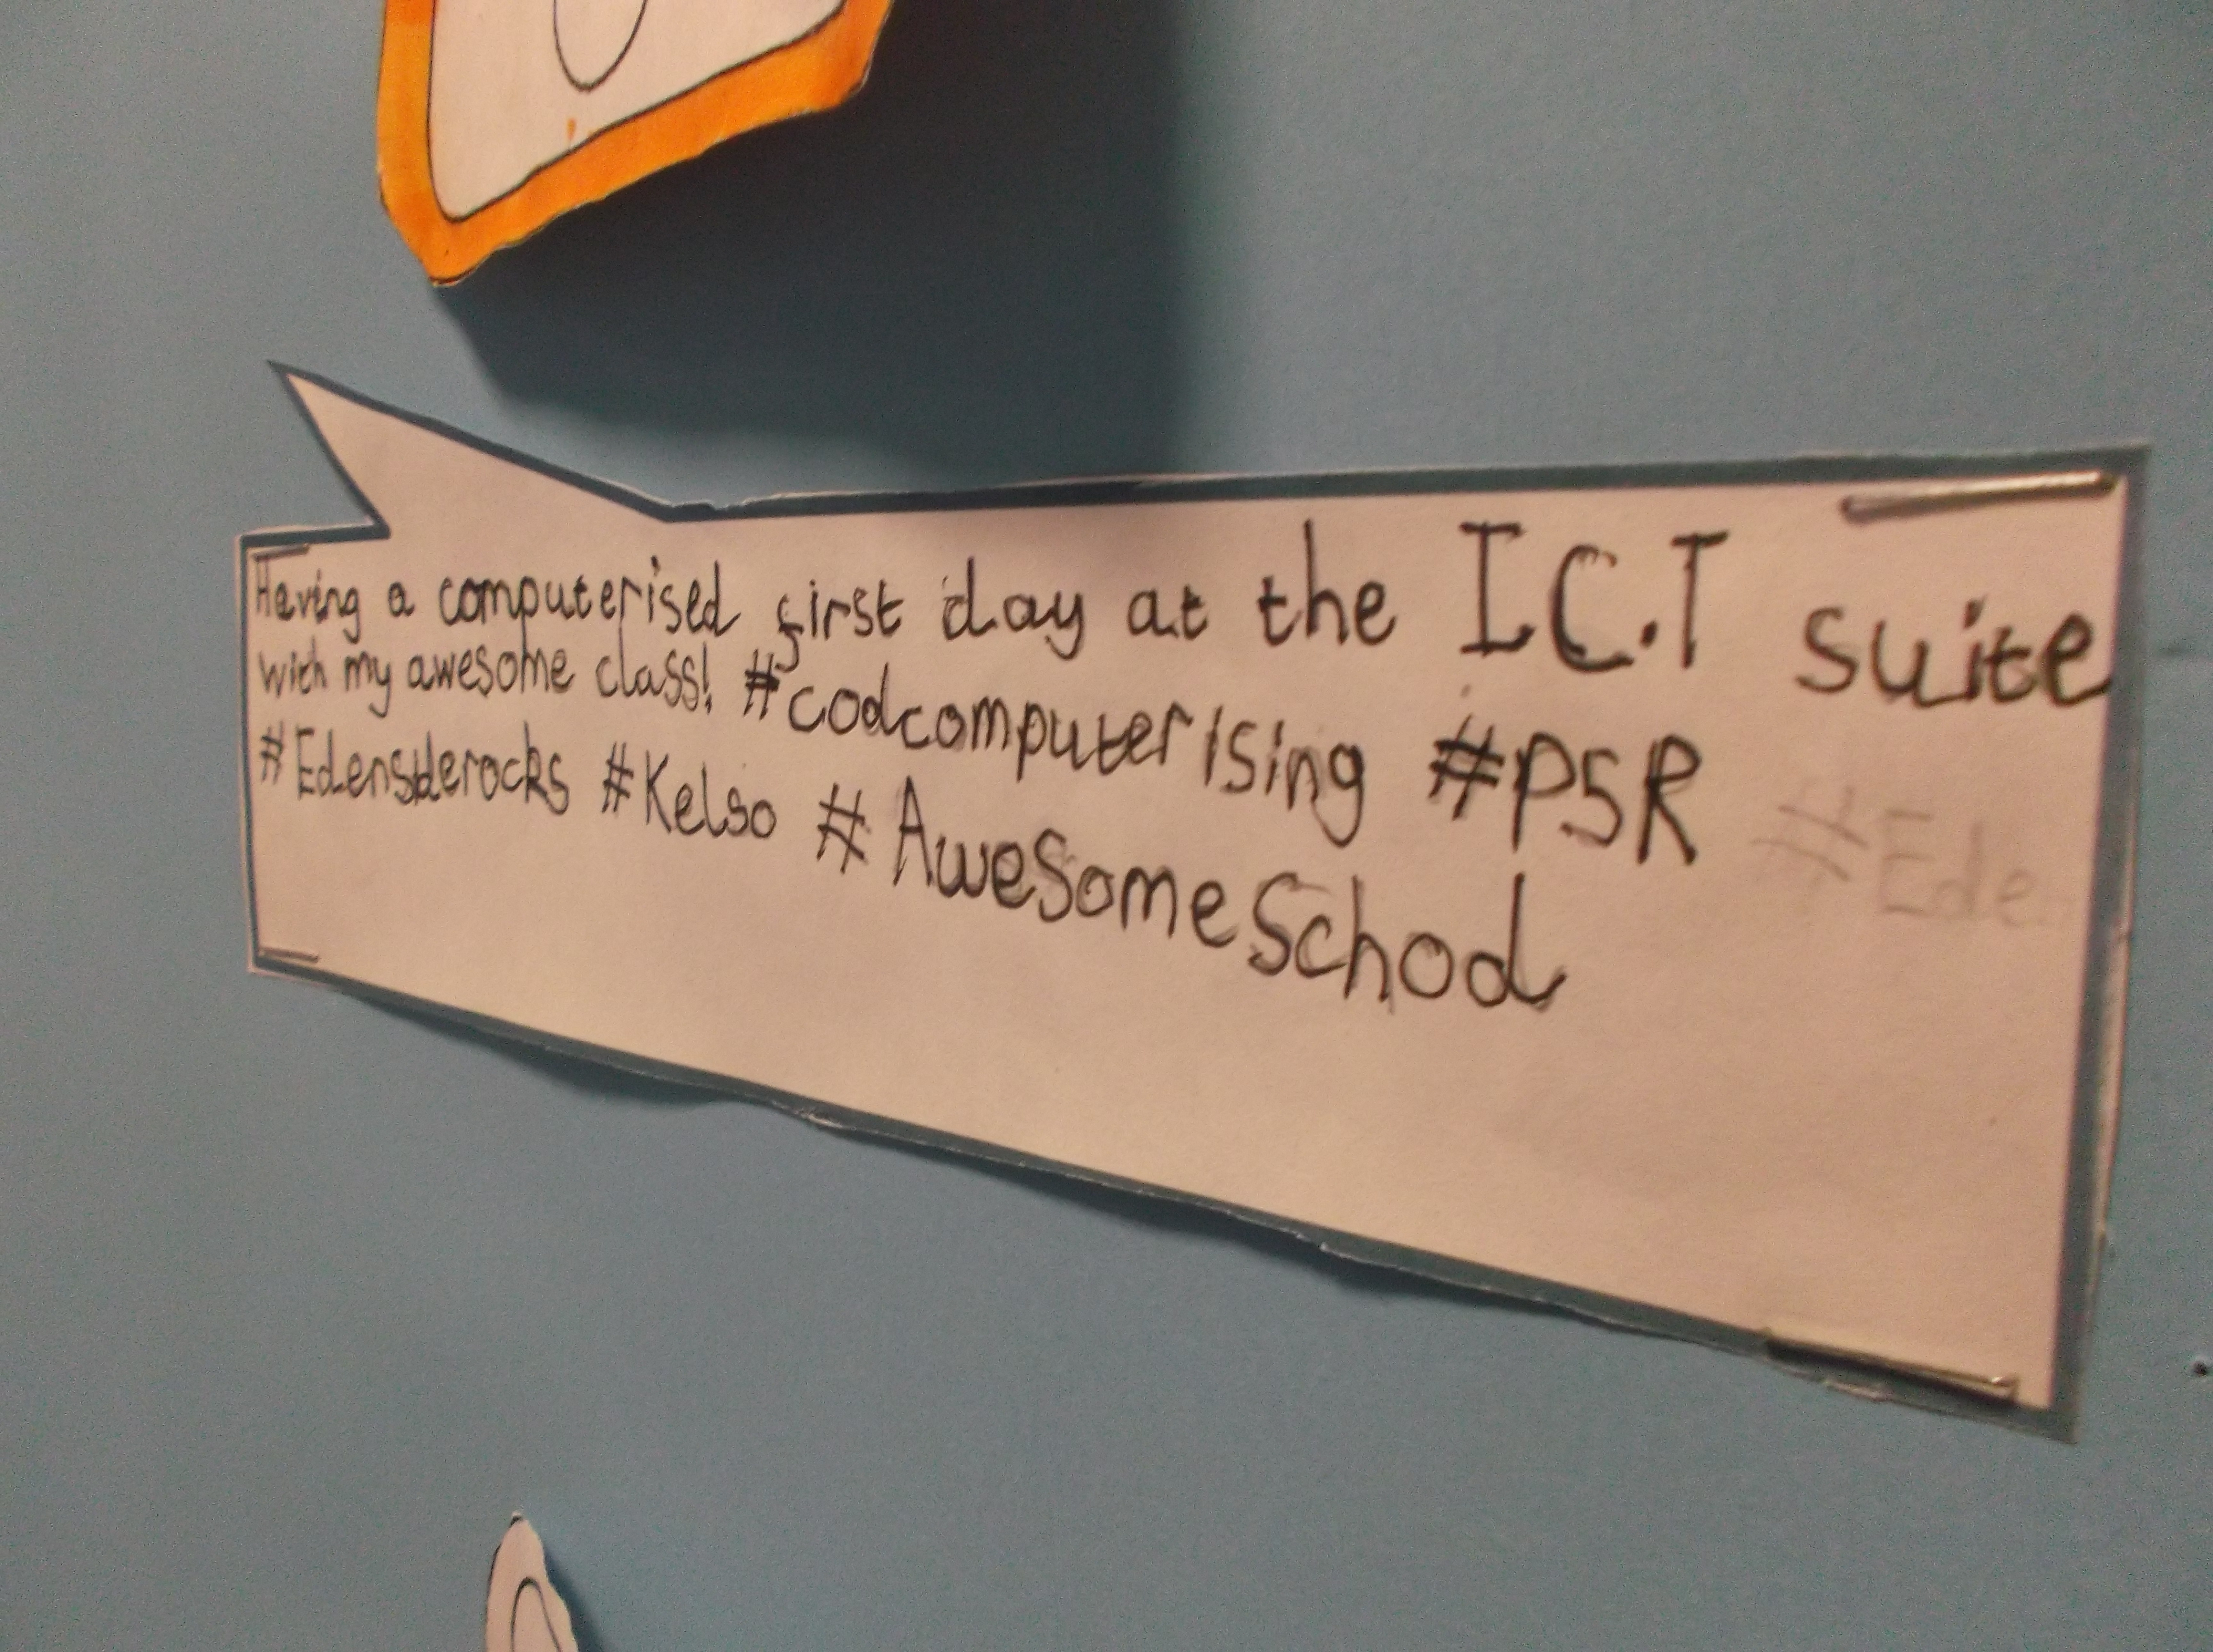 Having a computerised first day at the I.C.T suite
with my awesome class! #codcomputerising #P5R #Ede
#Edensiderocks #Kelso #AwesomeSchool